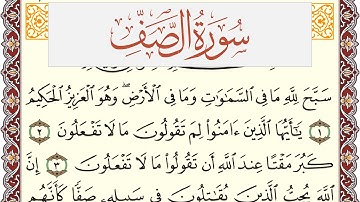 سُورَةُ الصَّفِّ
سَبَّحَ لِلَّهِ مَا فِي السَّمَاوَاتِ وَمَا فِي الْأَرْضِ ۖ وَهُوَ الْعَزِيزُ الْحَكِيمُ
١ يَا أَيُّهَا الَّذِينَ آمَنُوا لِمَ تَقُولُونَ مَا لَا تَفْعَلُونَ ٢
كَبُرَ مَقْتًا عِنْدَ اللَّهِ أَنْ تَقُولُوا مَا لَا تَفْعَلُونَ ٣ إِنَّ
اللَّهَ يُحِبُّ الَّذِينَ يُقَاتِلُونَ فِي سَبِيلِهِ صَفًّا كَأَنَّهُمْ